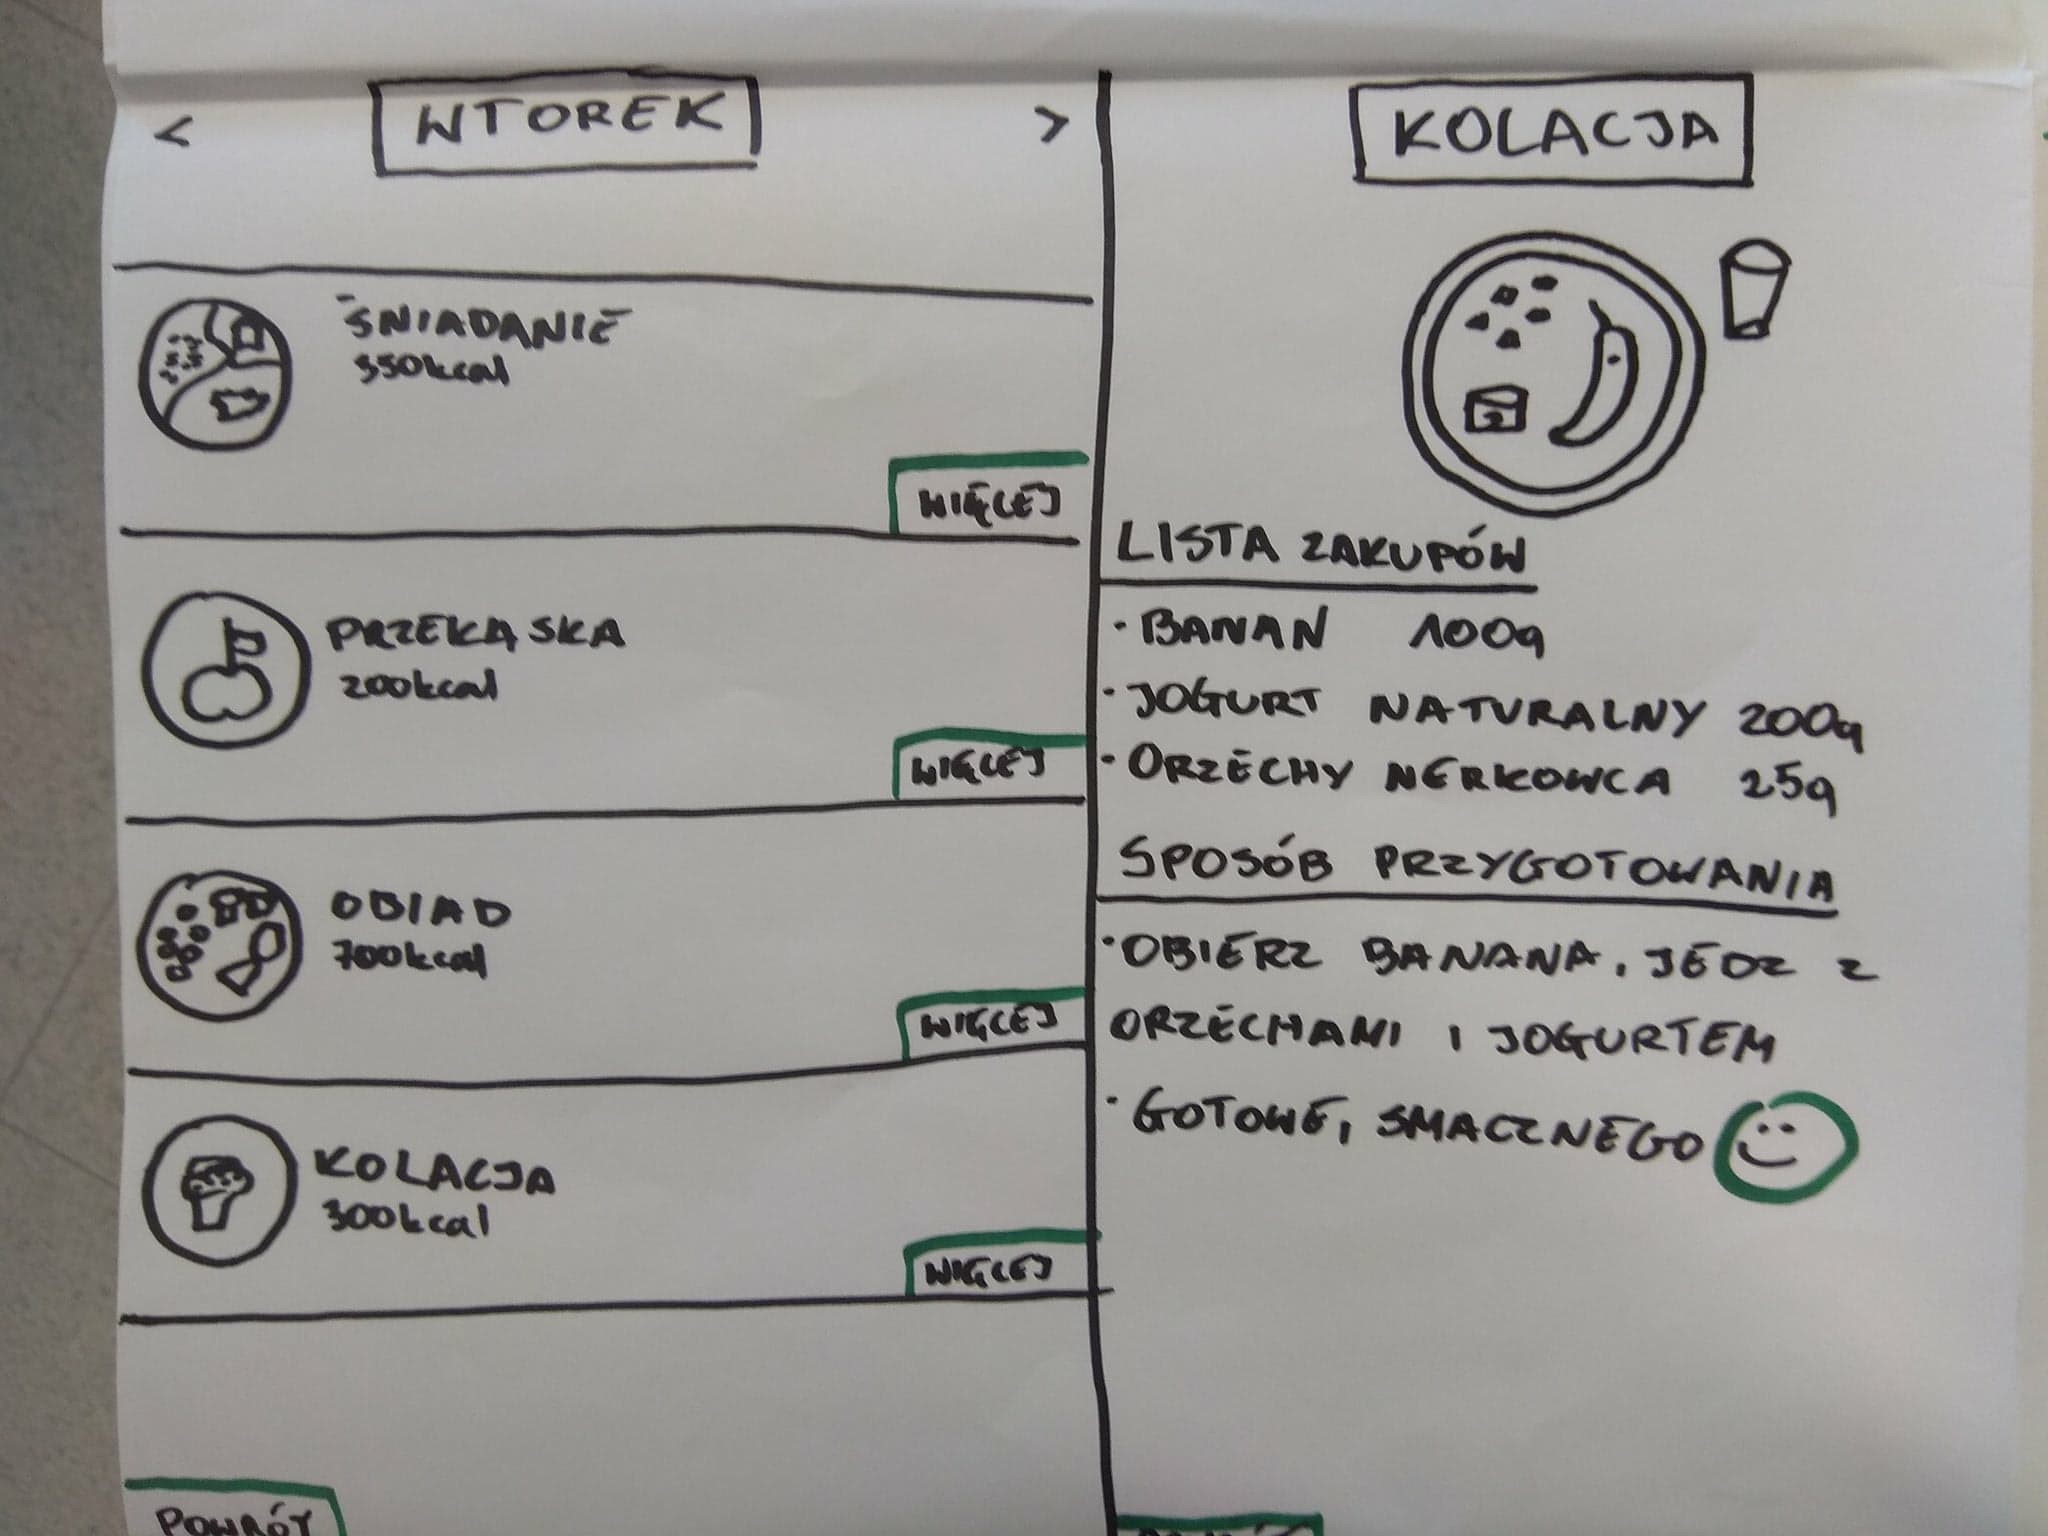 < WTOREK >
ŚNIADANIE
350kcal
WIĘCEJ
PRZEKĄSKA
200kcal
WIĘCEJ
OBIAD
700kcal
WIĘCEJ
KOLACJA
300kcal
WIĘCEJ
POWRÓT
KOLACJA
LISTA ZAKUPÓW
· BANAN 100g
· JOGURT NATURALNY 200g
· ORZECHY NERKOWCA 25g
SPOSÓB PRZYGOTOWANIA
· OBIERZ BANANA, JEDZ Z
ORZECHAMI I JOGURTEM
· GOTOWE, SMACZNEGO